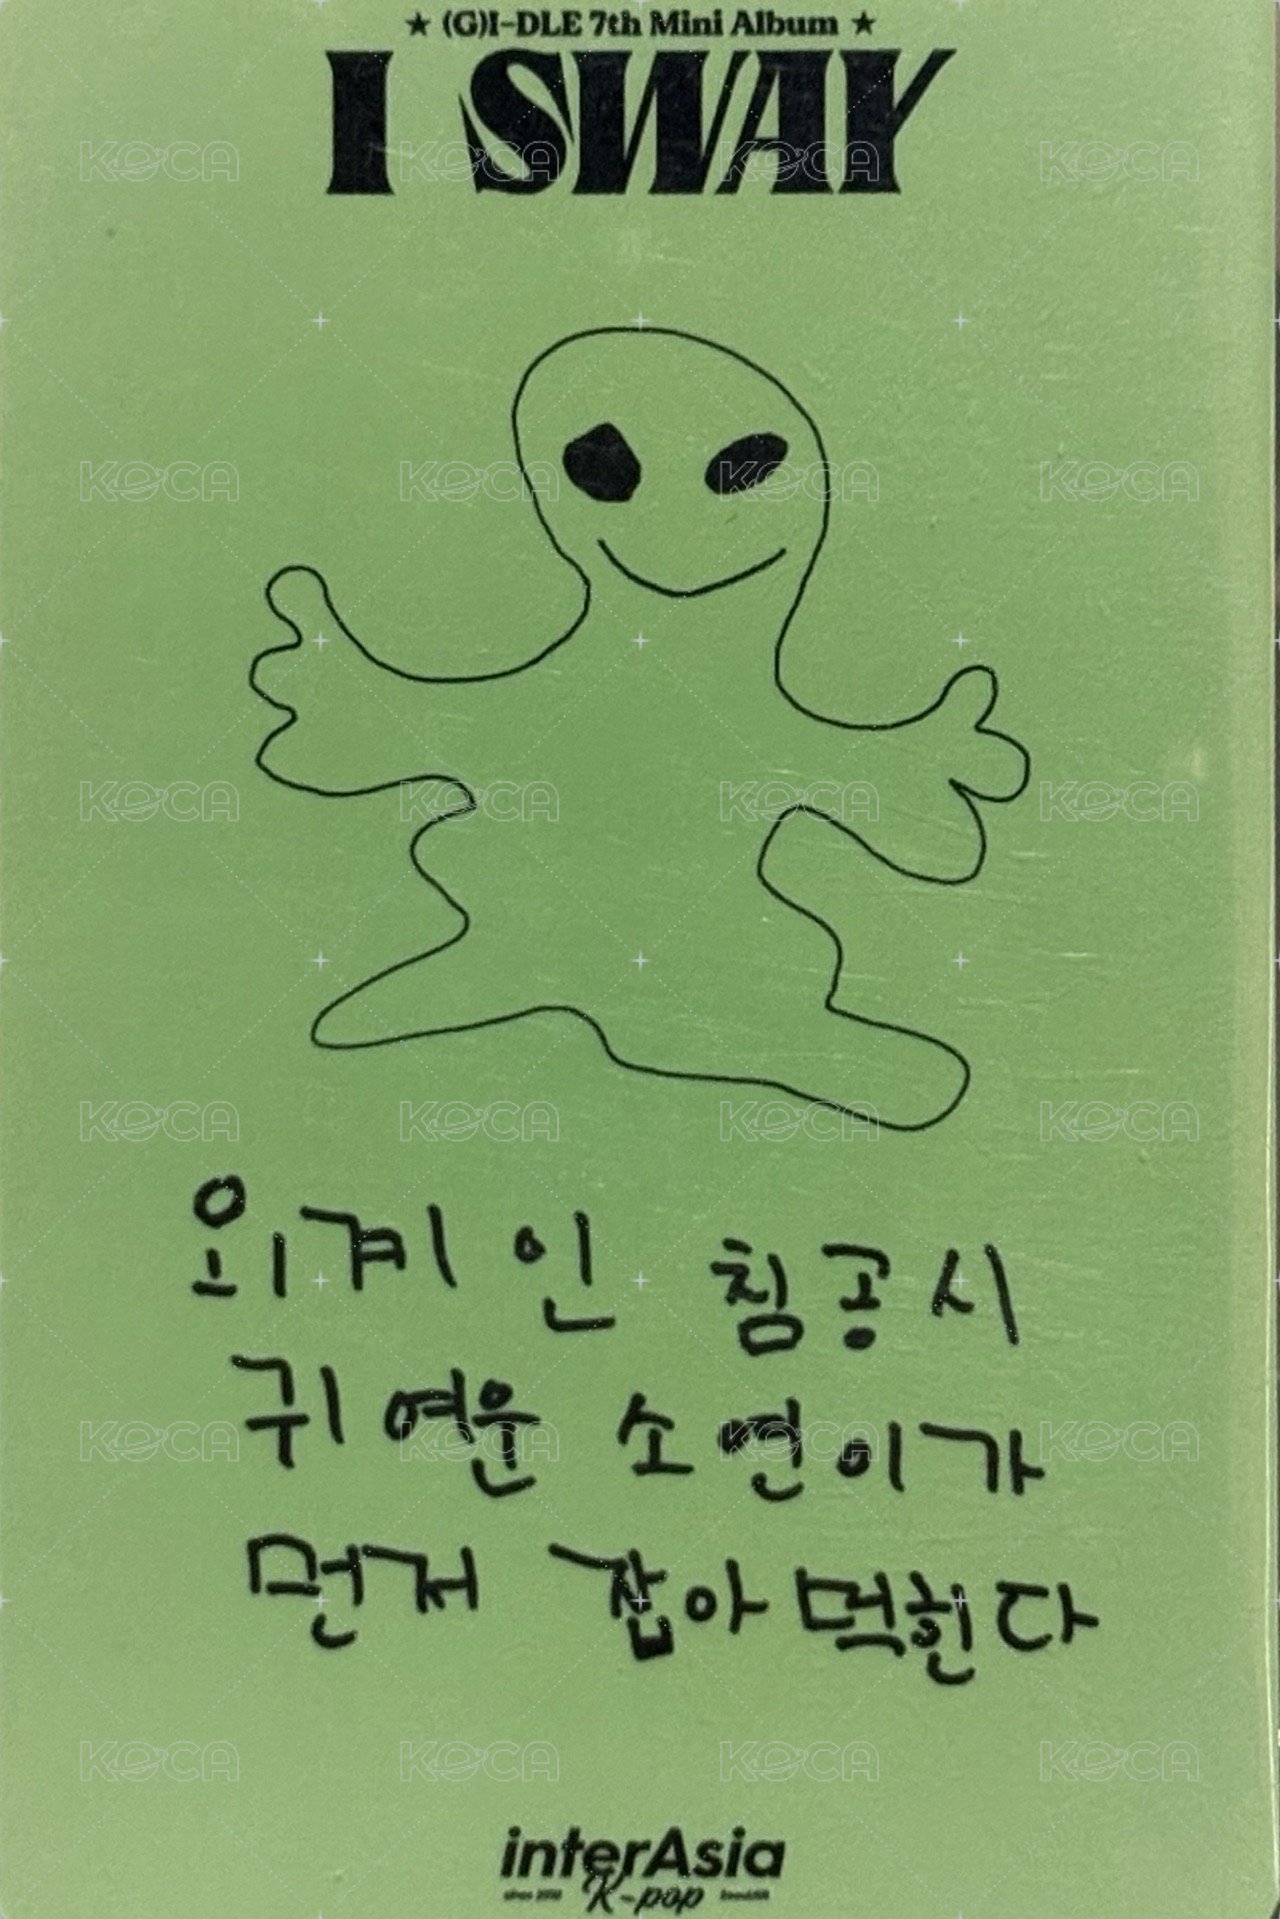 ★ (G)I-DLE 7th Mini Album ★
I SWAY
외계인 침공시
귀여운 소연이가
먼저 잡아먹힌다
interAsia
K-pop
KOCA